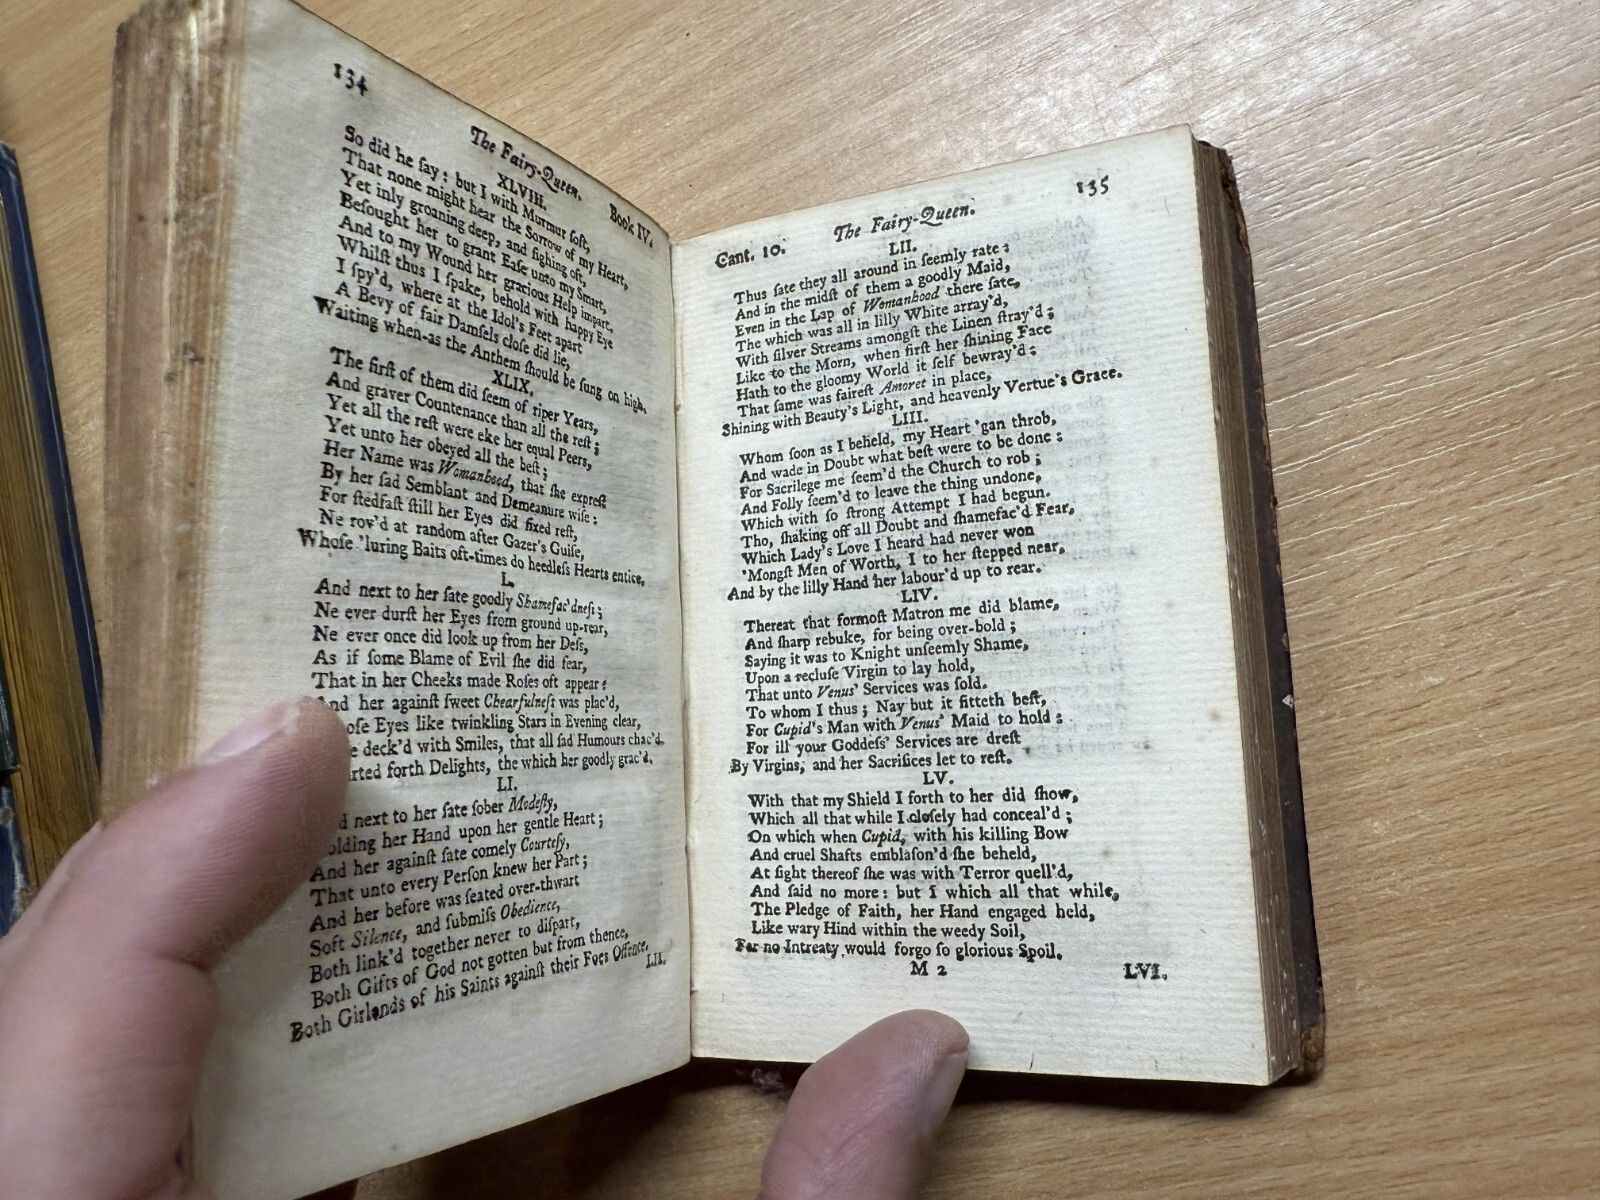 134
The Fairy-Queen.
Book IV.
XLVIII.
So did he ſay: but I with Murmur ſoft,
That none might hear the Sorrow of my Heart,
Yet inly groaning deep, and ſighing oft,
Beſought her to grant Eaſe unto my Smart,
And to my Wound her gracious Help impart.
Whilſt thus I ſpake, behold with happy Eye
I ſpy'd, where at the Idol's Feet apart
A Bevy of fair Damſels cloſe did lie,
Waiting when-as the Anthem ſhould be ſung on high.
XLIX.
The firſt of them did ſeem of riper Years,
And graver Countenance than all the reſt;
Yet all the reſt were eke her equal Peers,
Yet unto her obeyed all the beſt;
Her Name was Womanhood, that ſhe expreſt
By her ſad Semblant and Demeanure wiſe:
For ſtedfaſt ſtill her Eyes did fixed reſt,
Ne rov'd at random after Gazer's Guiſe,
Whoſe 'luring Baits oft-times do heedleſs Hearts entice.
L.
And next to her ſate goodly Shamefac'dneſs;
Ne ever durſt her Eyes from ground up-rear,
Ne ever once did look up from her Deſs,
As if ſome Blame of Evil ſhe did fear,
That in her Cheeks made Roſes oft appear:
And her againſt ſweet Chearfulneſs was plac'd,
oſe Eyes like twinkling Stars in Evening clear,
e deck'd with Smiles, that all ſad Humours chac'd.
rted forth Delights, the which her goodly grac'd.
LI.
d next to her ſate ſober Modeſty,
olding her Hand upon her gentle Heart;
And her againſt ſate comely Courteſy,
That unto every Perſon knew her Part;
And her before was ſeated over-thwart
Soft Silence, and ſubmiſs Obedience,
Both link'd together never to diſpart,
Both Gifts of God not gotten but from thence,
Both Girlands of his Saints againſt their Foes Offence.
LII.
135
Cant. 10.
The Fairy-Queen.
LII.
Thus ſate they all around in ſeemly rate:
And in the midſt of them a goodly Maid,
Even in the Lap of Womanhood there ſate,
The which was all in lilly White array'd,
With ſilver Streams amongſt the Linen ſtray'd;
Like to the Morn, when firſt her ſhining Face
Hath to the gloomy World it ſelf bewray'd:
That ſame was faireſt Amoret in place,
Shining with Beauty's Light, and heavenly Vertue's Grace.
LIII.
Whom ſoon as I beheld, my Heart 'gan throb,
And wade in Doubt what beſt were to be done:
For Sacrilege me ſeem'd the Church to rob;
And Folly ſeem'd to leave the thing undone,
Which with ſo ſtrong Attempt I had begun.
Tho, ſhaking off all Doubt and ſhamefac'd Fear,
Which Lady's Love I heard had never won
'Mongſt Men of Worth, I to her ſtepped near,
And by the lilly Hand her labour'd up to rear.
LIV.
Thereat that formoſt Matron me did blame,
And ſharp rebuke, for being over-bold;
Saying it was to Knight unſeemly Shame,
Upon a recluſe Virgin to lay hold,
That unto Venus' Services was ſold.
To whom I thus; Nay but it fitteth beſt,
For Cupid's Man with Venus' Maid to hold:
For ill your Goddeſs' Services are dreſt
By Virgins, and her Sacrifices let to reſt.
LV.
With that my Shield I forth to her did ſhow,
Which all that while I cloſely had conceal'd;
On which when Cupid, with his killing Bow
And cruel Shafts emblaſon'd ſhe beheld,
At ſight thereof ſhe was with Terror quell'd,
And ſaid no more: but I which all that while,
The Pledge of Faith, her Hand engaged held,
Like wary Hind within the weedy Soil,
For no Intreaty would forgo ſo glorious Spoil.
M 2
LVI.